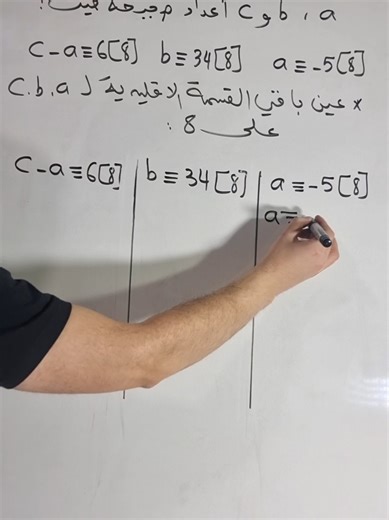 a ، b و c أعداد صحيحة حيث:
a ≡ -5[8] b ≡ 34[8] c - a ≡ 6[8]
* عين باقي القسمة الاقليدية لـ a، b، c
على 8 :
a ≡ -5[8] | b ≡ 34[8] | c - a ≡ 6[8]
a ≡